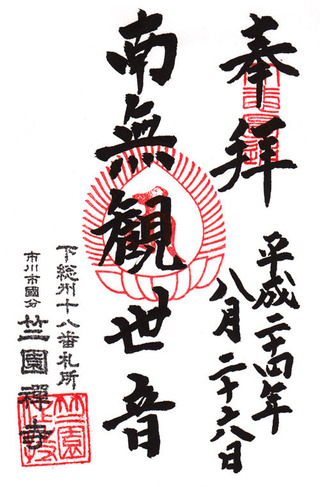 奉拝
平成二十四年
八月二十六日
南無観世音
下総州十八番札所
市川市國分
竺園禅寺